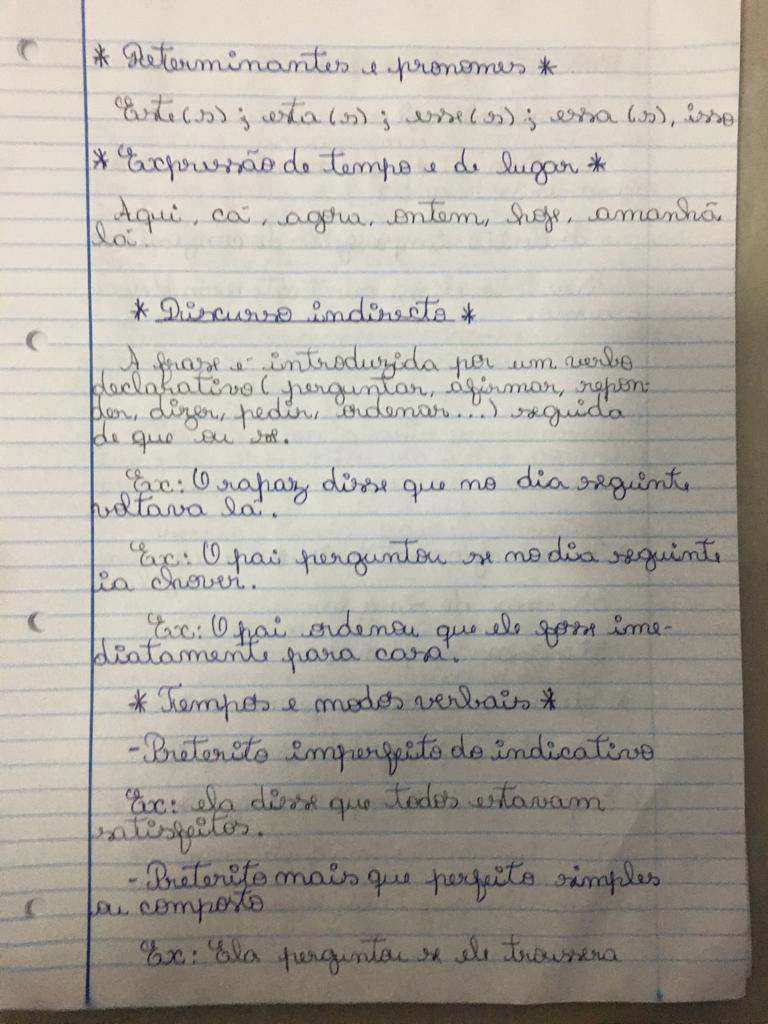 * Determinantes e pronomes *
Este(s) ; esta (s) ; esse(s) ; essa (s), isso
* Expressão de tempo e de lugar *
Aqui, cá, agora, ontem, hoje, amanhã
lá.
* Discurso indirecto *
A frase é introduzida por um verbo
declarativo ( perguntar, afirmar, repon-
der, dizer, pedir, ordenar...) seguida
de que ou se.
Ex: O rapaz disse que no dia seguinte
voltava lá.
Ex: O pai perguntou se no dia seguinte
ia chover.
Ex: O pai ordenou que ele fosse ime-
diatamente para casa.
* Tempos e modos verbais *
- Preterito imperfeito do indicativo
Ex: ela disse que todos estavam
satisfeitos.
- Preterito mais que perfeito simples
ou composto
Ex: Ela perguntou se ele trouxera